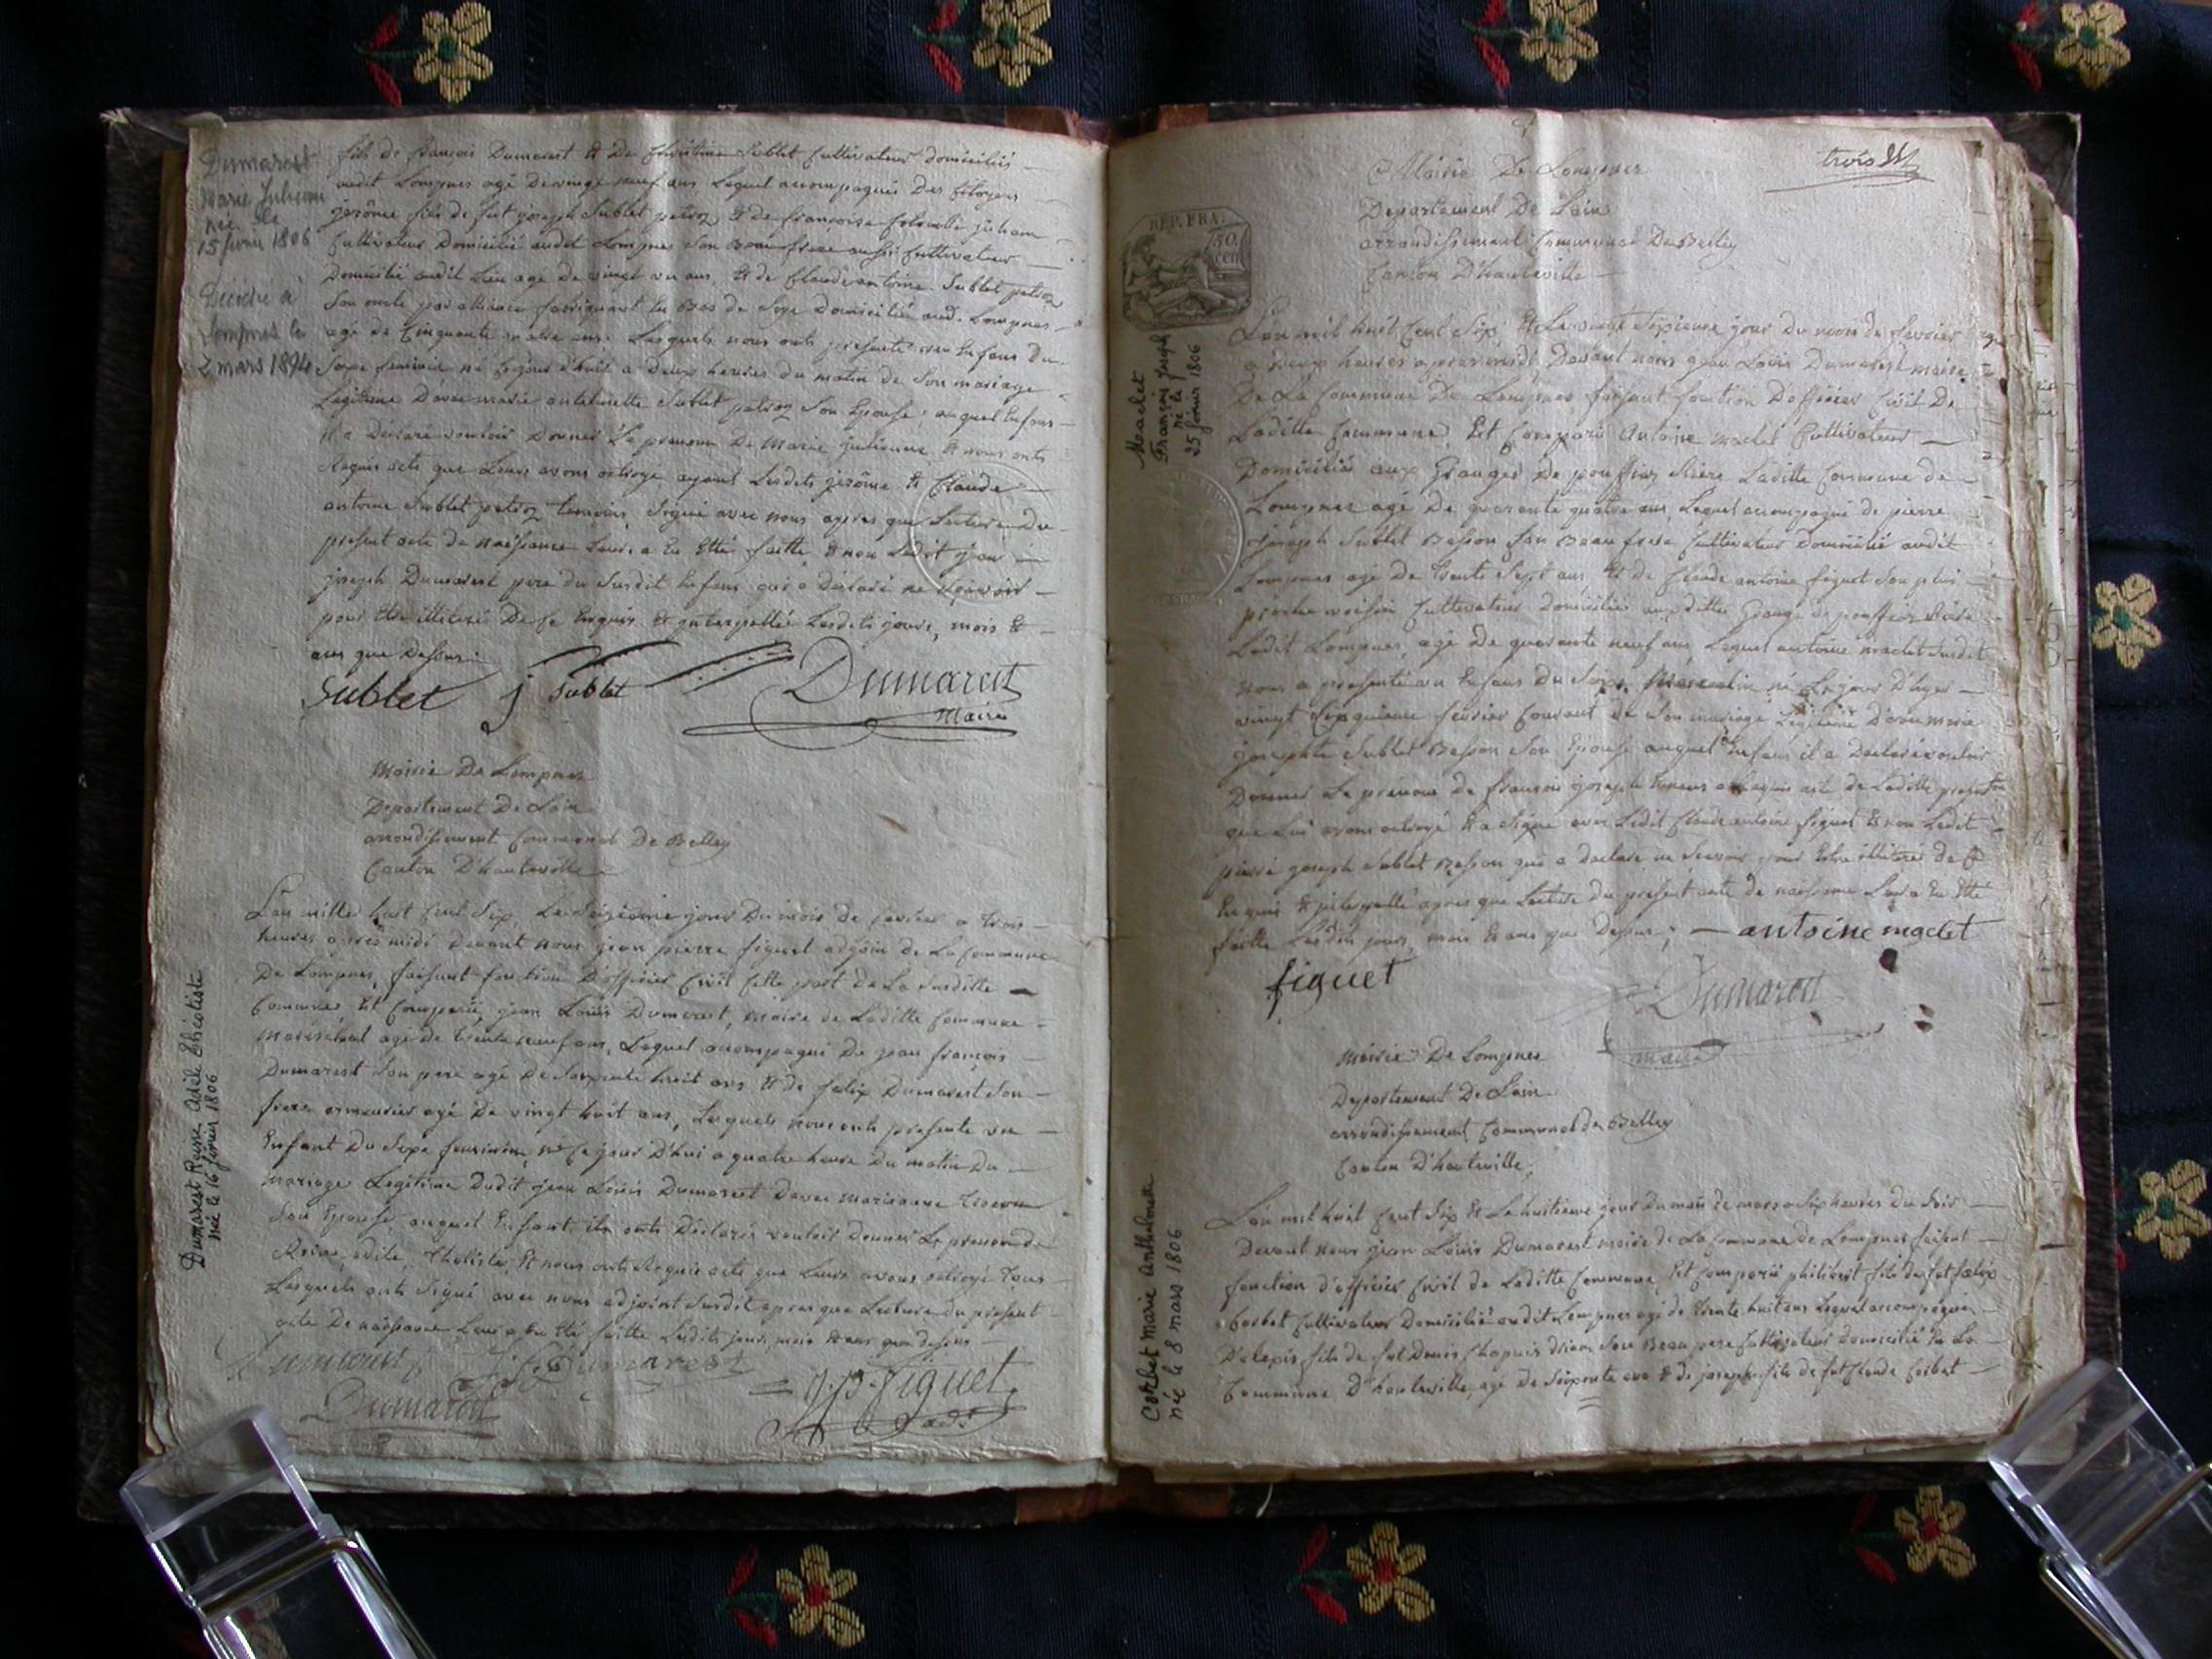 Dumarest
Marie Julienne
née le
15 février 1806
Décédée à
Lompnes le
2 mars 1894
fils de françois Dumarest & De Christine Sublet Cultivateur domiciliés
audit Lompnes agé de vingt neuf ans Lequel accompagné Des Citoyens
jerôme fils de fut joseph Sublet patroz & de françoise
Cultivateur Domicilié audit Lompnes Son Beau frere aussi Cultivateur
Domicilié audit Lieu agé de vingt un ans & de Claude antoine Sublet patroz
Son oncle par alliance fabriquant en Bas de Soye Domicilié aud. Lompnes
agé de Cinquante quatre ans Lesquels nous ont présenté un Enfans Du
Sexe feminin né Cejour d'huit a Deux heures du matin de Son mariage
Légitime D'avec marie antelmette Sublet patroz Son Epouse, auquel Enfans
il a Déclaré vouloir Donner Le prenom De Marie julienne & nous ont
Requis acte que Leurs avons octroyé ayant Lesdits jerôme & Claude
antoine Sublet patroz temoins, Signé avec nous apres que Lecture Du
présent acte de naissance Leurs a Eu Etté faitte, & non Ledit jean
joseph Dumarest pere du Susdit Enfans qui a Déclaré ne Scavoir
pour Etre illiteré De ce Enquis & interpellé Lesdits jours, mois &
ans que Dessus
Sublet j Sublet Dumarest
Maire
Mairie De Lompnes
Departement De Lain
arrondissement Communal De Belley
Canton D'hauteville
Dumarest Reine Adèle Théotiste
née le 16 février 1806
Lan mille huit Cent Six, Le Seizieme jour Du mois de fevrier a trois
heures après midi Devant nous jean pierre figuet adjoin de La Commune
De Lompnes, faisant fonction D'officier Civil Cette part de La Susditte
Commune Est Comparü jean Louis Dumarest, maire de Laditte Commune
Maréschal agé de trente neuf ans, Lequel accompagné De jean françois
Dumarest Son pere agé De Soixante huit ans & de felix Dumarest Son
frere armeurier agé De vingt huit ans, Lesquels nous ont présenté un
Enfant Du Sexe feminim, né Ce jour D'hui a quatre heure Du matin Du
Mariage Légitime Dudit jean Louis Dumarest Davec Marieanne
Son Epouse, auquel Enfant ils ont Déclarés vouloir Donner Le prenom de
Reine, adele, & nous ont Requis acte que Leurs avons octroyé tous
Lesquels ont Signé avec nous adjoint Susdit apres que Lecture du present
acte De naissance Leur a Eu Eté faitte Lesdits jour, mois & ans que dessus
Dumarest
Dumarest
j. p. figuet
adt
trois
Mairie De Lompnes
Departement De Lain
arrondissement Communal De Belley
Canton D'hauteville
REP. FRA.
50
cen
Maclet
François Joseph
né le
25 février 1806
Lan mil huit Cent Six, & Le vingt Sixieme jour Du mois de fevrier
a Deux heures apres midi Devant nous jean Louis Dumarest maire
De La Commune De Lompnes faisant fonction D'officier Civil De
Laditte Commune, Est Comparü Antoine maclet Cultivateur
Domicilié aux Granges De Riere Laditte Commune de
Lompnes agé De quarante quatre ans, Lequel accompagné de pierre
joseph Sublet Besson Son Beau frere Cultivateur Domicilié audit
Lompnes agé De trente Sept ans & de Claude antoine figuet Son plus
proche voisin Cultivateur Domicilié auxdittes Grange de Riere
Ledit Lompnes, agé De quarante neuf ans Lequel antoine maclet Susdit
nous a presenté un Enfans Du Sexe Masculin né Lejour D'hyer
vingt Cinquieme fevrier Courant de Son mariage Légitime D'avec marie
josephte Sublet Besson Son Epouse auquel Enfans il a Déclaré vouloir
Donner Le prénom de françois joseph & nous a Requis acte de Laditte présentation
que Lui avons octroyé & a Signé avec Ledit Claude antoine figuet & non Ledit
pierre joseph Sublet Besson qui a Declaré ne Scavoir pour Estre illiteré de Ce
Enquis & interpellé apres que Lecture du présent acte de naissance Leur a Eu Eté
faitte Lesdits jours, mois & ans que Dessus ; — antoine maclet
figuet
Dumarest
maire
Mairie De Lompnes
Departement De Lain
arrondissement Communal de Belley
Canton D'hauteville
Corbet Marie Anthelmette
née le 8 mars 1806
Lan mil huit Cent Six & Le huitieme jour Du mois de mars a Six heures Du Soir
Devant nous jean Louis Dumarest maire de La Commune de Lompnes faisant
fonction d'officier Civil de Laditte Commune, Est Comparü philibert fils de fut felix
Corbet Cultivateur Domicilié audit Lompnes agé de trente huit ans Lequel accompagné
D'alexis fils de fut Denis Chapuis Son Beau pere Cultivateur domicilié En La
Commune D'hauteville, agé De Soixante ans & de joseph fils de fut Claude Corbet